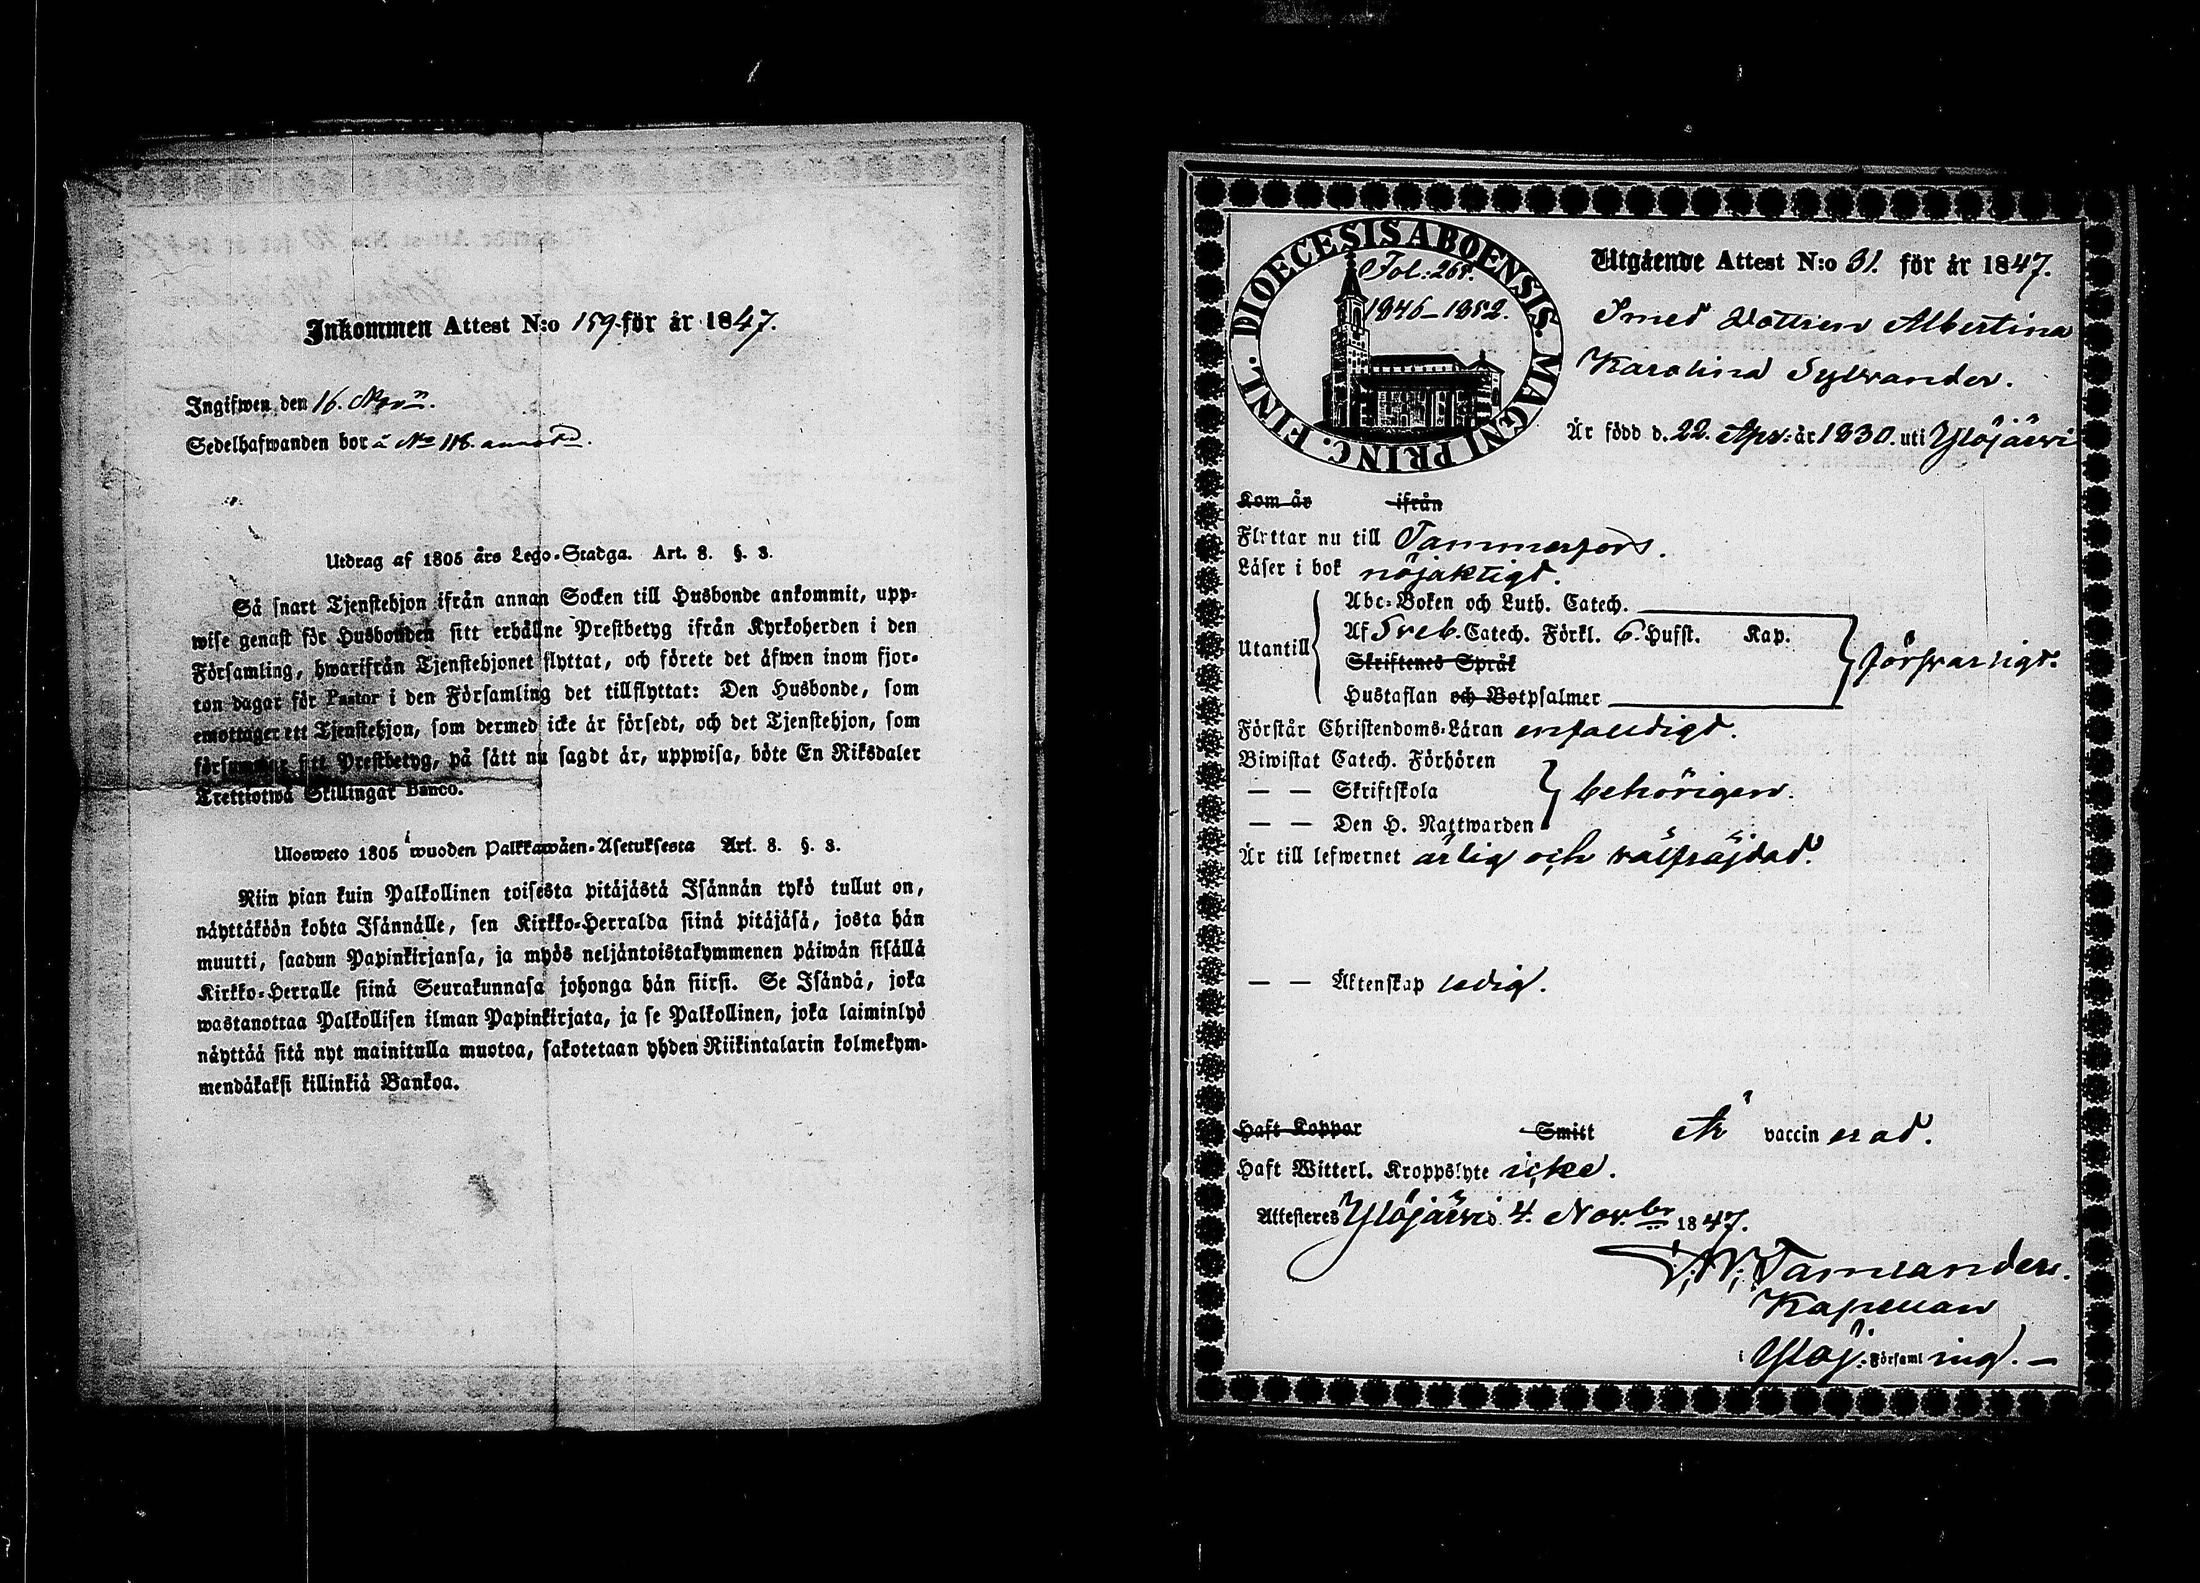 Inkommen Attest N:o 159. för år 1847.
Ingifwen den 16. Novr.
Sedelhafwanden bor å No 118.
Utdrag af 1805 års Lego-Stadga. Art. 8. §. 3.
Så snart Tjenstehjon ifrån annan Socken till Husbonde ankommit, upp-
wise genast för Husbonden sitt erhållne Prestbetyg ifrån Kyrkoherden i den
Församling, hwarifrån Tjenstehjonet flyttat, och förete det äfwen inom fjor-
ton dagar för Pastor i den Församling det tillflyttat: Den Husbonde, som
emottager ett Tjenstehjon, som dermed icke är försedt, och det Tjenstehjon, som
försummar sitt Prestbetyg, på sätt nu sagdt är, uppwisa, böte En Riksdaler
Trettiotwå Skillingar Banco.
Ulosweto 1805 wuoden Palkkawäen-Asetuksesta Art. 8. §. 3.
Niin pian kuin Palkollinen toisesta pitäjästä Isännän tykö tullut on,
näyttäköön kohta Isännälle, sen Kirkko-Herralda siinä pitäjäsä, josta hän
muutti, saadun Papinkirjansa, ja myös neljäntoistakymmenen päiwän sisällä
Kirkko-Herralle siinä Seurakunnasa johonga hän siirsi. Se Isändä, joka
wastanottaa Palkollisen ilman Papinkirjata, ja se Palkollinen, joka laiminlyö
näyttää sitä nyt mainitulla muotoa, sakotetaan yhden Riikintalarin kolmekym-
mendäkaksi killinkiä Bankoa.
DIOECESIS ABOENSIS. MAGNI PRINC. FINL.
Fol: 261.
1846-1852.
Utgående Attest N:o 31. för år 1847.
Smed Dottren Albertina
Karolina Sylvander.
Är född d. 22. Apr: år 1830. uti Ylöjärvi
Kom år ifrån
Flyttar nu till Tammerfors.
Läser i bok nöjaktigt.
Utantill
Abc-Boken och Luth. Catech.
Af Sveb. Catech. Förkl. 6. Hufst. Kap.
Skriftenes Språk
Hustaflan och Botpsalmer
försvarligt.
Förstår Christendoms-Läran enfaldigt.
Biwistat Catech. Förhören
— — Skriftskola
— — Den H. Nattwarden
behörigen.
Är till lefwernet ärlig och välfräjdad.
— — Äktenskap ledig.
Haft Koppor Smitt Är vaccinerad.
Haft Witterl. Kroppslyte icke.
Attesteres Ylöjärvi d. 4. Novbr 1847.
Kapellan
i Ylöj. Församling. —